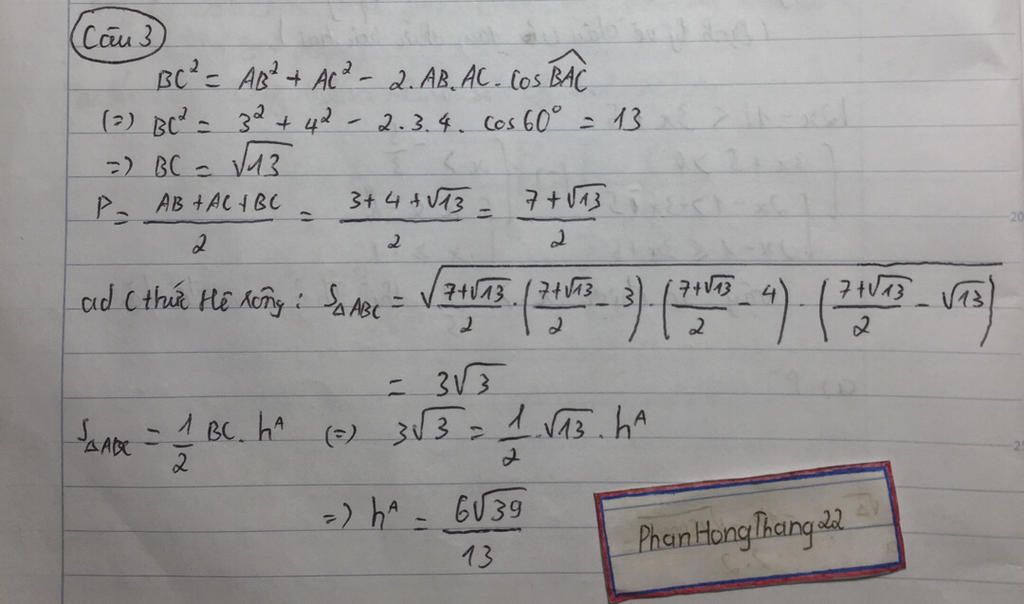 Câu 3
BC² = AB² + AC² - 2.AB.AC.cos\widehat{BAC}
(=) BC² = 3² + 4² - 2.3.4. cos60° = 13
=) BC = √13
P = (AB + AC + BC)/2 = (3 + 4 + √13)/2 = (7 + √13)/2
ad C thức Hê Rông: S△ABC = √((7+√13)/2 . ((7+√13)/2 - 3) . ((7+√13)/2 - 4) . ((7+√13)/2 - √13))
= 3√3
S△ABC = 1/2 BC. hᴬ (=) 3√3 = 1/2 . √13 . hᴬ
=) hᴬ = 6√39/13
PhanHongThang22